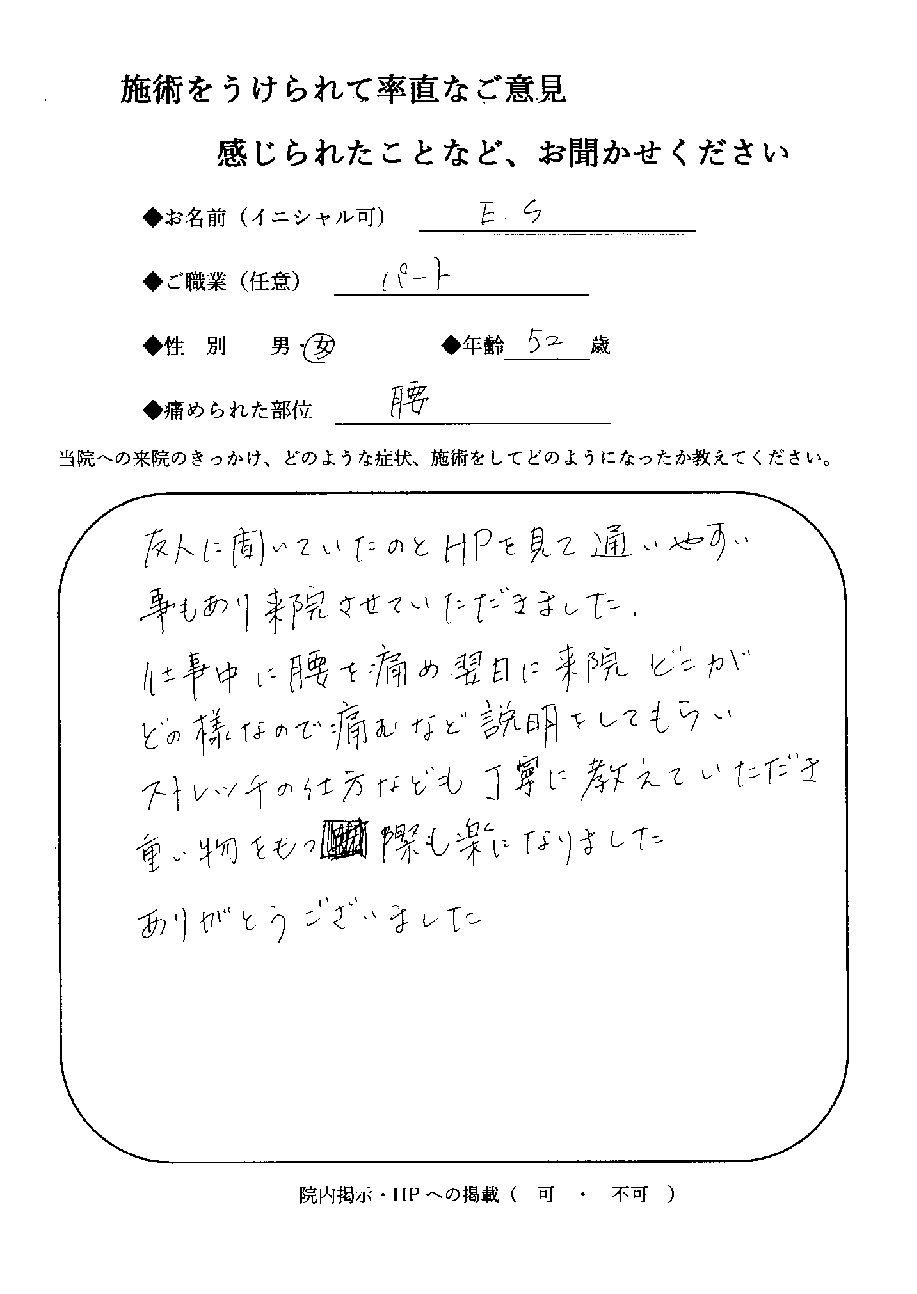 施術をうけられて率直なご意見
感じられたことなど、お聞かせください
◆お名前（イニシャル可） E.S
◆ご職業（任意） パート
◆性 別 男・女 ◆年齢 52 歳
◆痛められた部位 腰
当院への来院のきっかけ、どのような症状、施術をしてどのようになったか教えてください。
友人に聞いていたのとHPを見て通いやすい
事もあり来院させていただきました.
仕事中に腰を痛め翌日に来院 どこが
どの様なので痛むなど説明をしてもらい
ストレッチの仕方なども丁寧に教えていただき
重い物をもつ 際も楽になりました
ありがとうございました
院内掲示・HPへの掲載（ 可 ・ 不可 ）